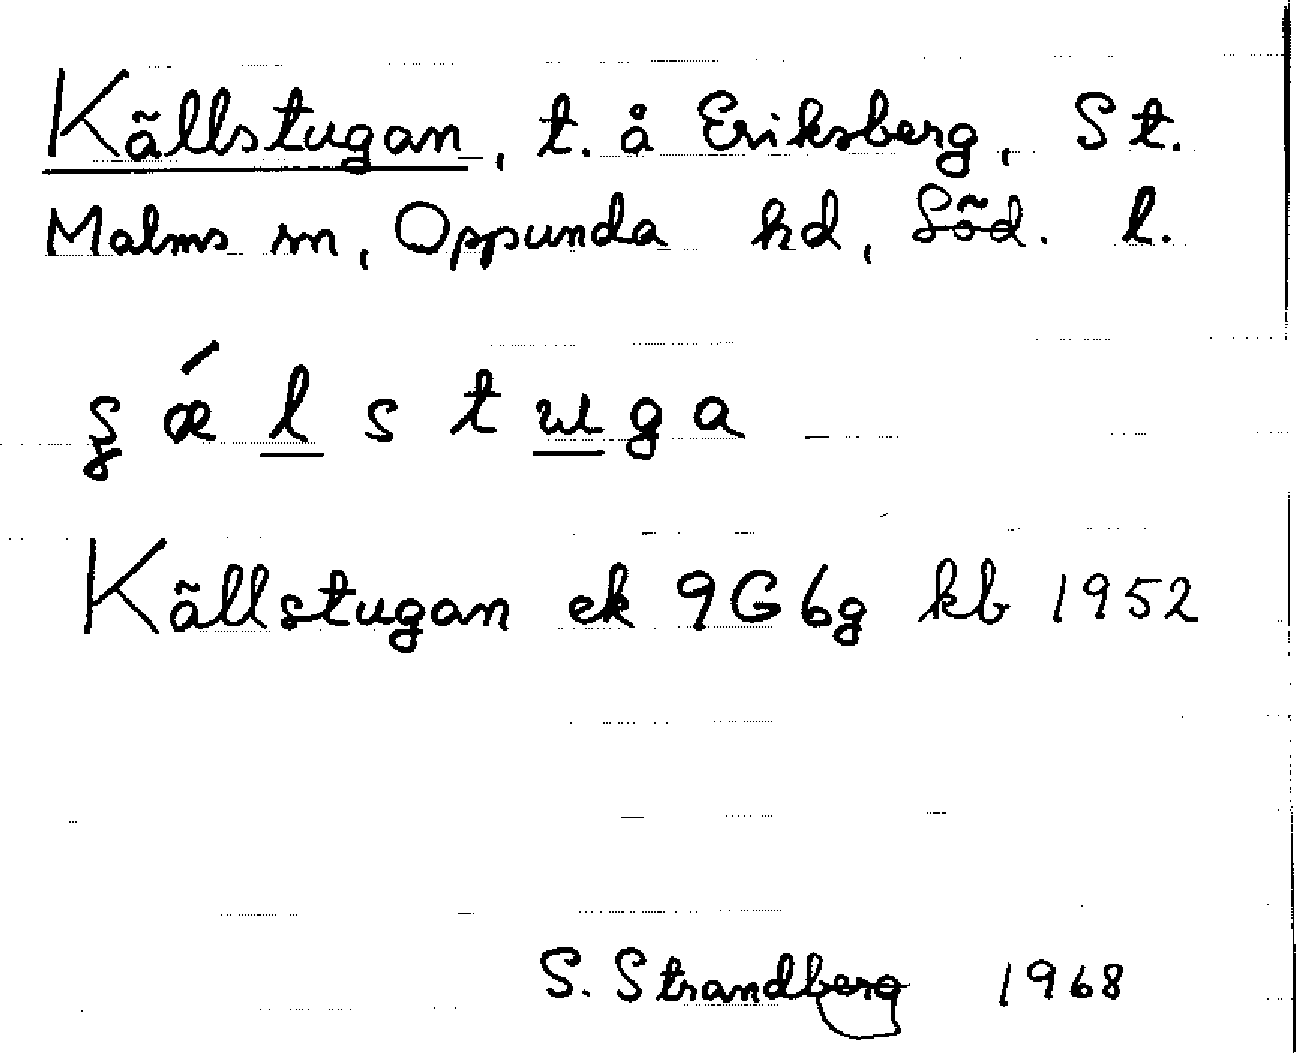 Källstugan, t. å Eriksberg, St.
Malms sn, Oppunda hd, Söd. l.
Källstugan ek 9G 6g kb 1952
S. Strandberg 1968